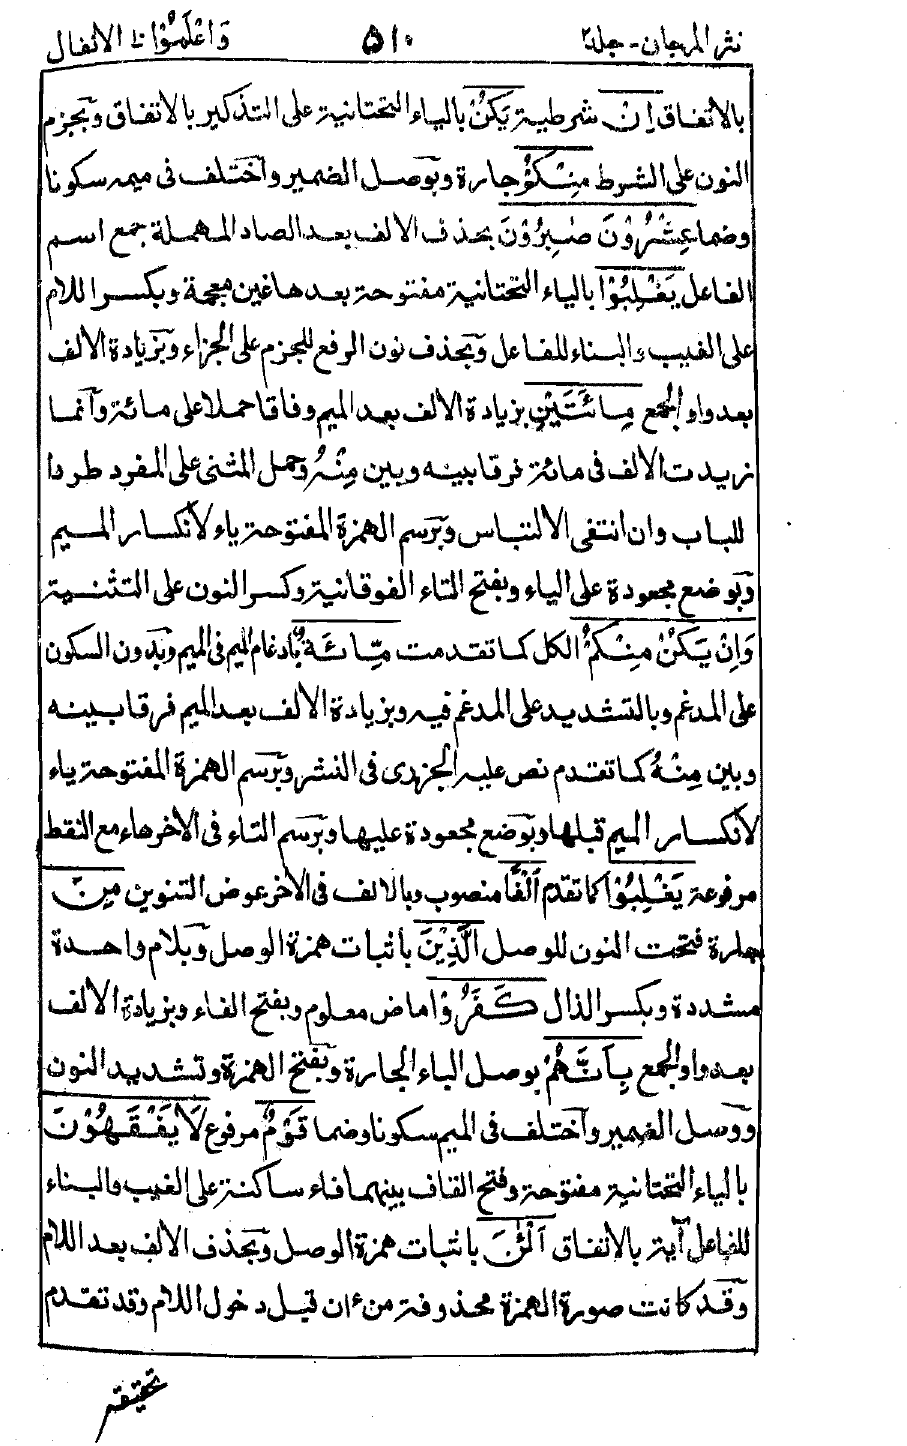 نثر المرجان - جلد٢ ٥١٠ وَاعْلَمُوْٓا ١٠ الانفال
بالاتفاق اِنْ شرطية يَكُنْ بالياء التحتانية على التذكير بالاتفاق وبجزم
النون على الشرط مِنْكُمْ جارة وبوصل الضمير واختلف فى ميمه سكونا
وضما عِشْرُوْنَ صٰبِرُوْنَ بحذف الالف بعد الصاد المهملة جمع اسم
الفاعل يَغْلِبُوْا بالياء التحتانية مفتوحة بعدها غين معجمة وبكسر اللام
على الغيب والبناء للفاعل وبحذف نون الرفع للجزم على الجزاء وبزيادة الالف
بعد واو الجمع مِائَتَيْنِ بزيادة الالف بعد الميم وفاقا حملا على مائة وانما
زيدت الالف فى مائة فرقا بينه وبين مِنْهُ وحمل المثنى على المفرد طردا
للباب وان انتفى الالتباس وبرسم الهمزة المفتوحة ياء لانكسار الميم
وبوضع مجعودة على الياء وبفتح التاء الفوقانية وكسر النون على التثنية
وَاِنْ يَكُنْ مِنْكُمْ الكل كما تقدمت مِّائَةٌ بادغام الميم فى الميم وبدون السكون
على المدغم وبالتشديد على المدغم فيه وبزيادة الالف بعد الميم فرقا بينه
وبين مِنْهُ كما تقدم نص عليه الجزرى فى النشر وبرسم الهمزة المفتوحة ياء
لانكسار الميم قبلها وبوضع مجعودة عليها وبرسم التاء فى الاخر هاء مع النقط
مرفوعة يَغْلِبُوْا كما تقدم اَلْفًا منصوب وبالالف فى الاخر عوض التنوين مِنَ
جارة فتحت النون للوصل الَّذِيْنَ باثبات همزة الوصل وبلام واحدة
مشددة وبكسر الذال كَفَرُوْا ماض معلوم وبفتح الفاء وبزيادة الالف
بعد واو الجمع بِاَنَّهُمْ بوصل الباء الجارة وبفتح الهمزة وتشديد النون
ووصل الضمير واختلف فى الميم سكونا وضما قَوْمٌ مرفوع لَا يَفْقَهُوْنَ
بالياء التحتانية مفتوحة وفتح القاف بينهما فاء ساكنة على الغيب والبناء
للفاعل آية بالاتفاق اَلْـٰٔنَ باثبات همزة الوصل وبحذف الالف بعد اللام
وقد كانت صورة الهمزة محذوفة من ءان قبل دخول اللام وقد تقدم
تحقيقه